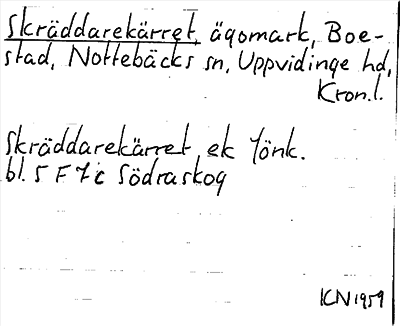 Skräddarekärret, ägomark, Boe-
stad, Nottebäcks sn, Uppvidinge hd,
Kron.l.
Skräddarekärret ek Jönk.
bl. 5 F 7 c Södraskog
KN 1959